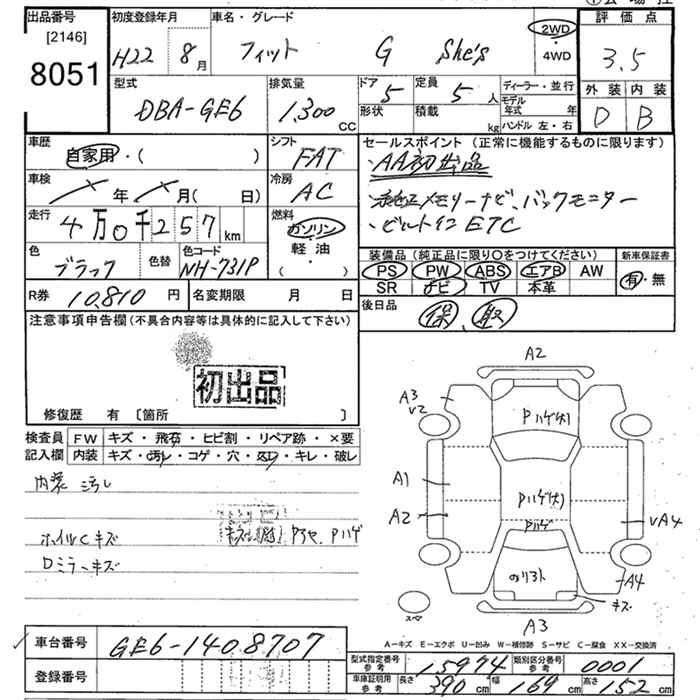 出品番号 [2146] 8051
初度登録年月 H22 8月
車名・グレード フィット G She's
2WD・4WD
評価点 3.5
外装 D 内装 B
型式 DBA-GE6
排気量 1,300 CC
ドア 5 形状
定員 5 人 積載 kg
ディーラー・並行
モデル年式 年
ハンドル 左・右
車歴 自家用・( )
シフト FAT
セールスポイント (正常に機能するものに限ります)
・AA初出品
・純正メモリーナビ、バックモニター
・ビルトインETC
車検 年 月( 日)
冷房 AC
走行 4万0千257km
燃料 ガソリン・軽油 ( )
色 ブラック 色替 色コード NH-731P
装備品 (純正品に限り〇をつけてください) 新車保証書
PS PW ABS エアB AW 有・無
SR ナビ TV 本革
R券 10,810円 名変期限 月 日
後日品 保、取
注意事項申告欄 (不具合内容等は具体的に記入して下さい)
初出品
修復歴 有 〔箇所 〕
検査員記入欄
FW キズ・飛石・ヒビ割・リペア跡・×要
内装 キズ・汚レ・コゲ・穴・凹・キレ・破レ
内装 汚レ
ホイルCキズ
Dミラーキズ
Pハゲ
A2
A3
V2
Pハゲ(大)
A1
Pハゲ(大)
A2
Pハゲ
VA4
のりヌケ
A4
キズ
スペア
A3
A-キズ E-エクボ U-凹み W-補修跡 S-サビ C-腐食 XX-交換済
車台番号 GE6-1408707
登録番号
型式指定番号 参考 15974 類別区分番号 参考 0001
車庫証明用 参考 長さ 390 cm 幅 169 cm 高さ 152 cm